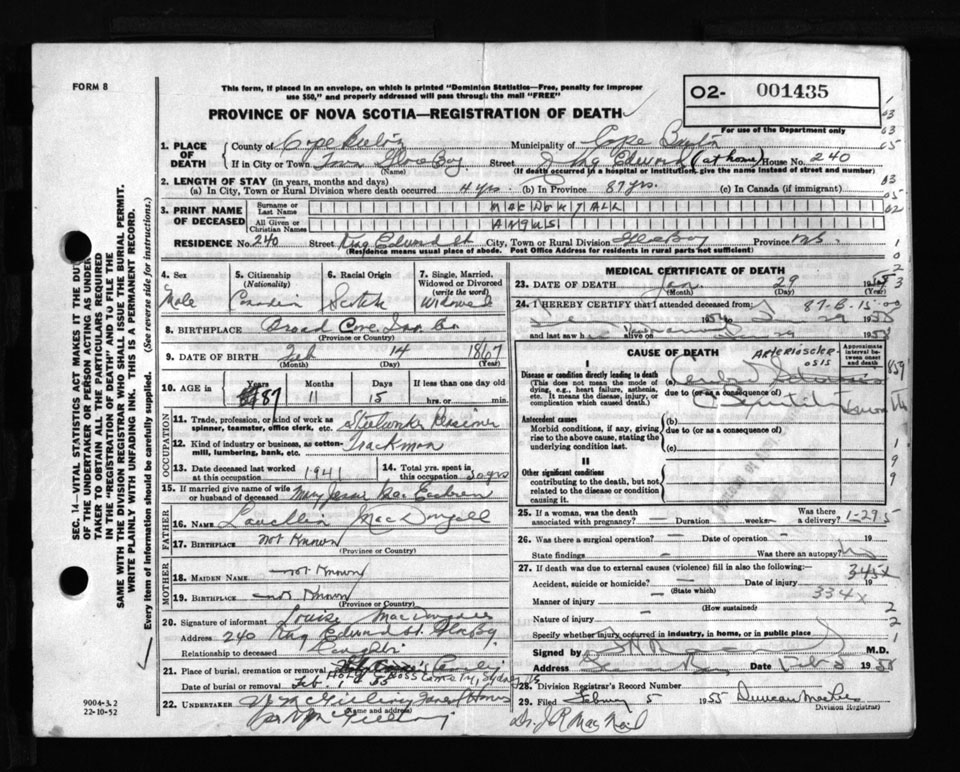 FORM 8
This form, if placed in an envelope, on which is printed "Dominion Statistics—Free, penalty for improper
use $50," and properly addressed will pass through the mail "FREE"
PROVINCE OF NOVA SCOTIA—REGISTRATION OF DEATH
O2- 001435
For use of the Department only
1. PLACE OF DEATH
County of Cape Breton Municipality of Cape Breton
If in City or Town Town Glace Bay Street King Edward (at home) House No. 240
(Name) (If death occurred in a hospital or institution, give the name instead of street and number)
2. LENGTH OF STAY (in years, months and days)
(a) In City, Town or Rural Division where death occurred 4 yrs. (b) In Province 87 yrs. (c) In Canada (if immigrant)
3. PRINT NAME OF DECEASED
Surname or Last Name MacDougall
All Given or Christian Names ANGUS
RESIDENCE No. 240 Street King Edward St City, Town or Rural Division Glace Bay Province N.S.
(Residence means usual place of abode. Post Office Address for residents in rural parts not sufficient)
4. Sex Male
5. Citizenship (Nationality) Canadian
6. Racial Origin Scotch
7. Single, Married, Widowed or Divorced (write the word) Widowed
8. BIRTHPLACE Broad Cove, Inv. Co
(Province or Country)
9. DATE OF BIRTH Feb 14 1867
(Month) (Day) (Year)
10. AGE in Years 87 Months 11 Days 15 If less than one day old hrs. or min.
OCCUPATION
11. Trade, profession, or kind of work as spinner, teamster, office clerk, etc. Steelworker Pensioner
12. Kind of industry or business, as cotton-mill, lumbering, bank, etc. Trackman
13. Date deceased last worked at this occupation 1941
14. Total yrs. spent in this occupation 30 yrs
15. If married give name of wife or husband of deceased Mary Jessie
FATHER
16. NAME Lauchlin MacDougall
17. BIRTHPLACE not Known
(Province or Country)
MOTHER
18. MAIDEN NAME not Known
19. BIRTHPLACE not Known
(Province or Country)
20. Signature of informant Louise MacDougall
Address 240 King Edward St. Glace Bay
Relationship to deceased Daughter
21. Place of burial, cremation or removal Holy Cross Cemetery, Sydney NS
Date of burial or removal Feb. 1 55
22. UNDERTAKER
(Name and address)
MEDICAL CERTIFICATE OF DEATH
23. DATE OF DEATH Jan. 29 1955
(Month) (Day)
24. I HEREBY CERTIFY that I attended deceased from
87-6-15-00
and last saw h alive on
CAUSE OF DEATH
Approximate interval between onset and death
I
Disease or condition directly leading to death
(This does not mean the mode of dying, e.g., heart failure, asthenia, etc. It means the disease, injury, or complication which caused death.)
(a) ARTERIOSCLEROSIS
due to (or as a consequence of)
Antecedent causes
Morbid conditions, if any, giving rise to the above cause, stating the underlying condition last.
(b)
due to (or as a consequence of)
(c)
II
Other significant conditions
contributing to the death, but not related to the disease or condition causing it.
25. If a woman, was the death associated with pregnancy? — Duration weeks— Was there a delivery?
1-295
26. Was there a surgical operation? — Date of operation — 19
State findings — Was there an autopsy? No
27. If death was due to external causes (violence) fill in also the following:
Accident, suicide or homicide? — Date of injury 19
(State which)
334x
Manner of injury —
(How sustained)
Nature of injury —
Specify whether injury occurred in industry, in home, or in public place
Signed by M.D.
Address Date Feb 5 1955
28. Division Registrar's Record Number
29. Filed February 5 1955 Duncan
Division Registrar
Dr. J R MacNeil
SEC. 14—VITAL STATISTICS ACT MAKES IT THE DUTY
OF THE UNDERTAKER OR PERSON ACTING AS UNDER-
TAKER TO OBTAIN ALL THE PARTICULARS REQUIRED
IN THE "REGISTRATION OF DEATH" AND TO FILE THE
SAME WITH THE DIVISION REGISTRAR WHO SHALL ISSUE THE BURIAL PERMIT.
WRITE PLAINLY WITH UNFADING INK. THIS IS A PERMANENT RECORD.
Every item of information should be carefully supplied. (See reverse side for instructions.)
9004-3.2
22-10-52